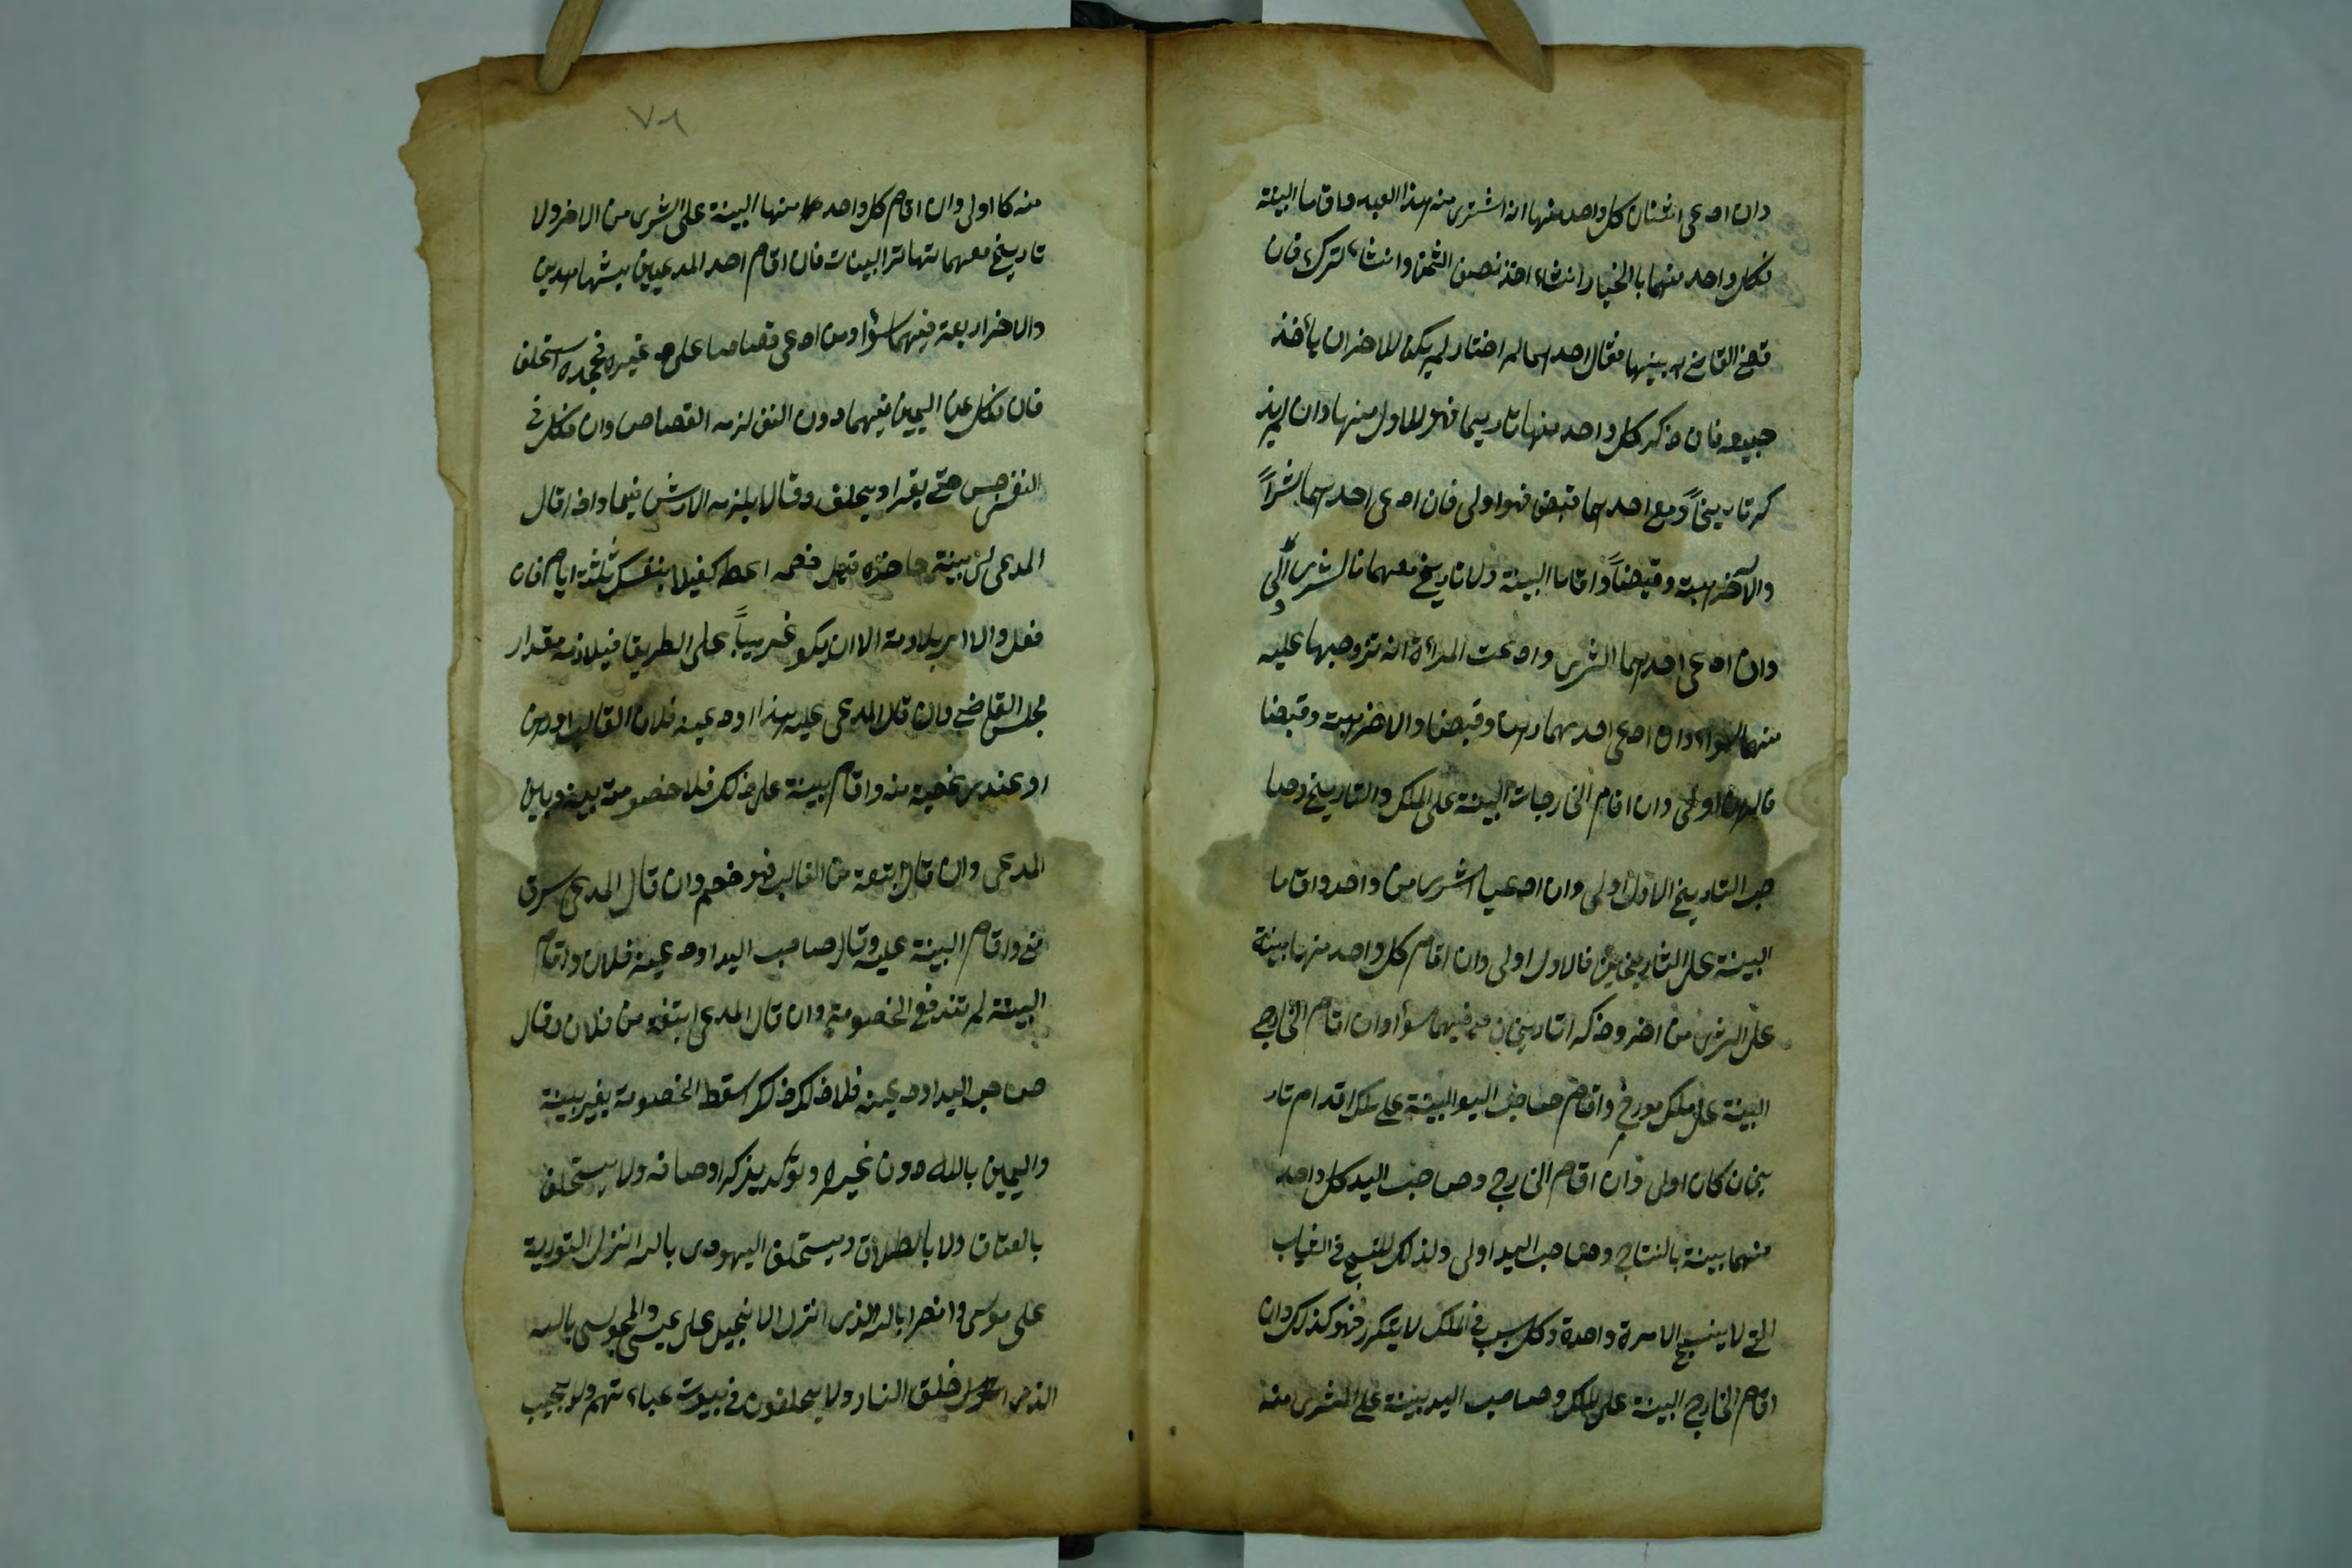 وان ادعى اثنان كل واحد منهما انه اشترى منه هذا العبد واقاما البينة
فكل واحد منهما بالخيار انشاء اخذ نصف الثمن وانشاء ترك فان
قضى القاضى به بينهما فقال احدهما لم اختار لم يكن للاخر ان يأخذ
جميعه فان ذكر كل واحد منهما تاريخا فهو للاول منهما وان لم يذ
كر تاريخاً ومع احدهما قبض فهو اولى فان ادعى احدهما شراً
والآخر هبة وقبضاً واقاما البينة ولا تاريخ معهما فالشرى اولى
وان ادعى احدهما الشرى وادعت المرأة انه تزوجها عليه
فهما سواء وان ادعى احدهما رهنا وقبضا والاخر هبة وقبضا
فالرهن اولى وان اقام الخارجان البينة على الملك والتاريخ فصا
حب التاريخ الاول اولى وان ادعيا الشرى من واحد واقاما
البينة على التاريخين فالاول اولى وان اقام كل واحد منهما بينة
على الشرى من اخر وذكر اتاريخان فهما سواء وان اقام الخارج
البينة على ملك مورخ واقام صاحب اليد البينة على ملك اقدام تار
يخان كان اولى وان اقام الخارج وصاحب اليد كل واحد
منهما بينة بالنتاج وصاحب اليد اولى ولذلك النسج فى الثياب
التى لا ينسج الا مرة واحدة وكل سبب فى الملك لا يتكرر فهو كذلك وان
اقام الخارج البينة على الملك وصاحب اليد بينة على الشرى منه
٧٨
منه كا اولى وان اقام كل واحد منهما البينة على الشرى من الاخر ولا
تاريخ معهما تهاتر البينات فان اقام احد المدعيين بشهاهدين
والاخر اربعة فهما سواء ومن ادعى قصاصا على غيره فجحده استحلف
فان نكل عن اليمين فيهما دون النفس لزمه القصاص وان نكل فى
النفس حبس حتى يقرا ويحلف وقالا يلزمه الارش فيهما واذا قال
المدعى لى بينة حاضرة قيل خصمه اعطه كفيلا بنفسك ثلثة ايام فان
فعل والا امر بملازمته الا ان يكو غريباً على الطريق فيلازمه مقدار
مجلس القاضى وان قال المدعى عليه هذا اودعينه فلان الغائب او رهن
او عندى غصبته منه واقام بينة على ذلك فلا خصومة بينه وبين
المدعى وان قال ابتعته من الغائب فهو خصم وان قال المدعى سرق
منى واقام البينة عليه وقال صاحب اليد اودعينه فلان واقام
البينة لم تندفع الخصومة وان قال المدعى ابتعته من فلان وقال
صاحب اليد اودعينه فلان ذلك سقط الخصومة بغير بينة
واليمين بالله دون غيره ويؤكد يذكر اوصافه ولا يستحلف
بالعتاق ولا بالطلاق ويستحلف اليهودى بالله انزل التورية
على موسى وانصرا بالله الذى انزل الانجيل على عيسى والمجوسى بالله
الذى خلق النار ولا يحلفون فى بيوت عباد تهم ولا يجب